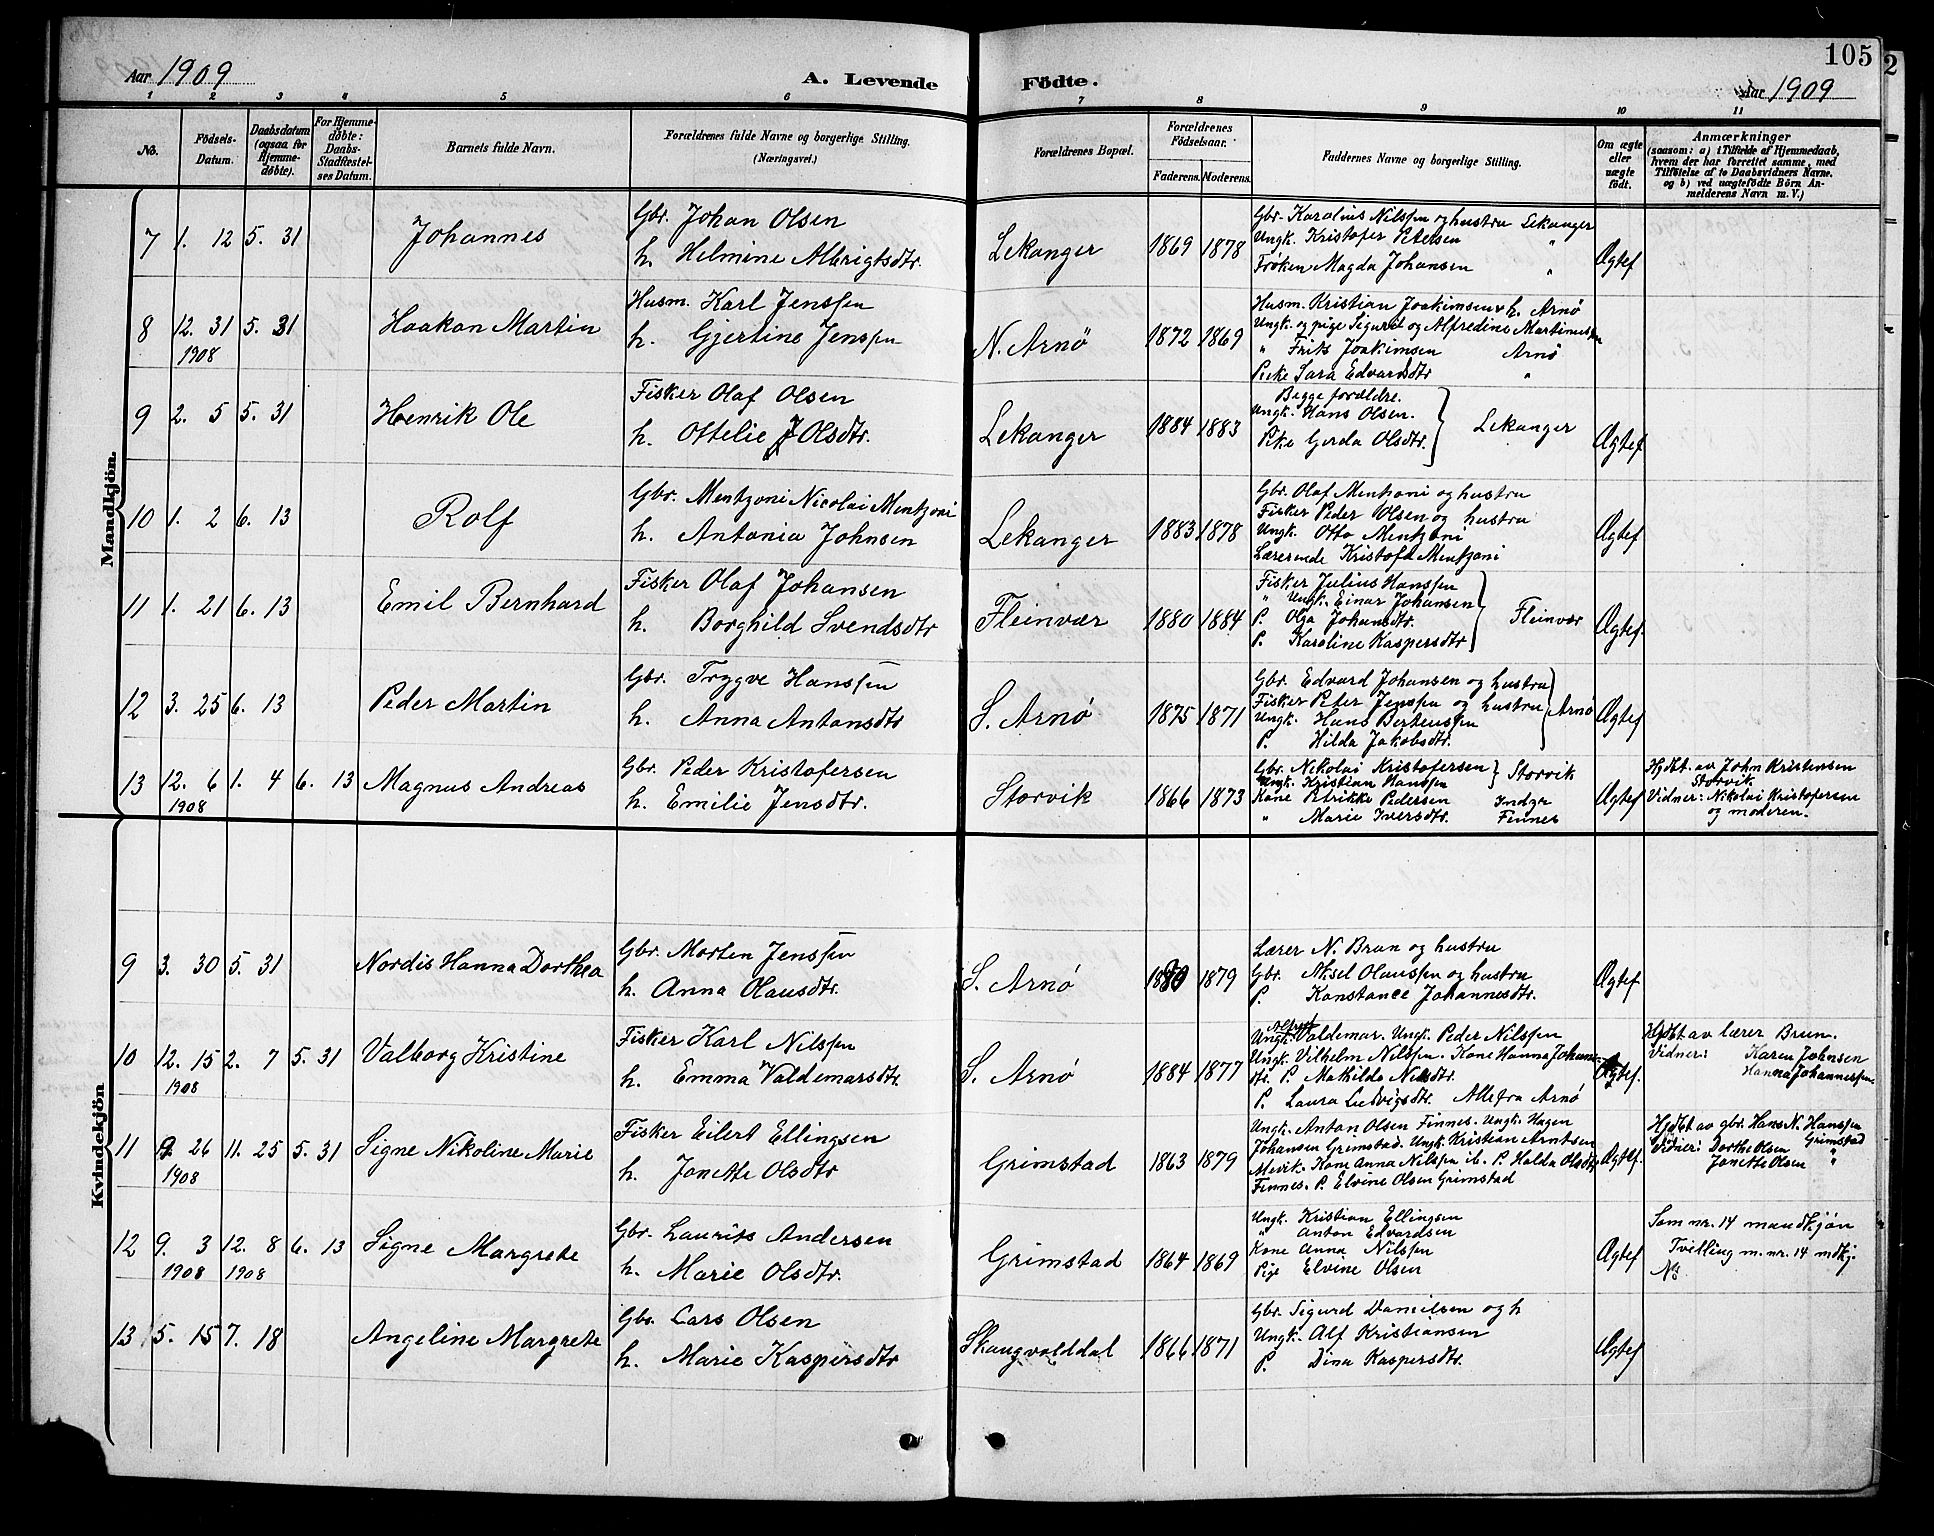 105
Aar 1909
A. Levende Födte.
Aar 1909
1 2 3 4 5 6 7 8 9 10 11
No.
Födsels-Datum.
Daabsdatum (ogsaa for Hjemmedöbte).
For Hjemmedöbte: Daabs-Stadfæstelses Datum.
Barnets fulde Navn.
Forældrenes fulde Navne og borgerlige Stilling.
(Næringsvei.)
Forældrenes Bopæl.
Forældrenes Födselsaar.
Faderens. Moderens.
Faddernes Navne og borgerlige Stilling.
Om ægte eller uægte födt.
Anmærkninger
(saasom: a) i Tilfælde af Hjemmedaab,
hvem der har forrettet samme, med
Tilföielse af to Daabsvidners Navne.
og b) ved uægtefödte Börn An-
melderens Navn m. V.)
Mandkjön.
7 1. 12 5. 31 Johannes
Gbr. Johan Olsen
h. Helmine Albrigtsdtr.
Lekanger 1869 1878
Gbr. Karolius Nilssen og hustru Lekanger
Ungk. Kristofer Petersen "
Frøken Magda Johansen "
Ægtef
8 12. 31 5. 31 Haakon Martin
1908
Husm. Karl Jenssen
h. Gjertine Jenssen
N. Arnö 1872 1869
Husm. Kristian Joakimsen h. Arnö
Ungk. og pige Sigurd og Alfredine Martinussen
" Frits Joakimsen Arnö
Pike Sara Edvardsdtr "
9 2. 5 5. 31 Henrik Ole
Fisker Olaf Olsen
h. Ottelie J Olsdtr.
Lekanger 1884 1883
Begge forældre.
Ungk. Hans Olsen.
Pike Gerda Olsdtr.
Lekanger
Ægtef
10 1. 2 6. 13 Rolf
Gbr. Mentzoni Nicolai Mentzoni
h. Antonia Johnsen
Lekanger 1883 1878
Gbr. Olaf Mentzoni og hustru
Fisker Peder Olsen og hustru
Ungk. Otto Mentzoni
Lærerinde Kristofa Mentzoni
Ægtef
11 1. 21 6. 13 Emil Bernhard
Fisker Olaf Johansen
h. Borghild Svendsdtr
Fleinvær 1880 1884
Fisker Julius Hanssen
" Ungk. Einar Johansen
P. Olga Johansdtr.
P. Karoline Kaspersdtr
Fleinvær
Ægtef.
12 3. 25 6. 13 Peder Martin
Gbr. Trygve Hanssen
h. Anna Antonsdtr
S. Arnö 1875 1871
Gbr. Edvard Johansen og hustru
Fisker Peter Jenssen og hustru
Ungk. Hans Bertenssen
P. Hilda Jakobsdtr.
Arnö
Ægtef
13 12. 6 1. 4 6. 13 Magnus Andreas
1908
Gbr. Peder Kristofersen
h. Emilie Jensdtr.
Storvik 1866 1873
Gbr. Nikolai Kristofersen
Ungk. Kristian Hanssen
Storvik
Kone Petrikke Pedersen Indyr
" Marie Iversdtr. Finnes
Ægtef
Hjdbt. av John Kristensen
Storvik
Vidner: Nikolai Kristofersen
og moderen.
Kvindekjön
9 3. 30 5. 31 Nordis Hanna Dorthea
Gbr. Morten Jenssen
h. Anna Olausdtr.
S. Arnö 1880 1879
Lærer N. Brun og hustru
Gbr. Aksel Olaussen og hustru
P. Konstance Johannesdtr.
Ægtef
10 12. 15 2. 7 5. 31 Valborg Kristine
1908
Fisker Karl Nilssen
h. Emma Valdemarsdtr.
S. Arnö 1884 1877
Ungk. Valdemar. Ungk. Peder Nilssen
Ungk. Vilhelm Nilssen. Kone Hanna Johannes-
dtr. P. Mathilde Nilsdtr.
P. Laura Ludvigsdtr. Alle fra Arnö
Ægtef.
Hjdbt. av lærer Brun.
Vidner: Karen Johnsen
Hanna Johannessen.
11 9. 26 11. 25 5. 31 Signe Nikoline Marie
1908
Fisker Eilert Ellingsen
h. Jonette Olsdtr
Grimstad 1863 1879
Ungk. Anton Olsen Finnes. Ungk. Hagen
Johansen Grimstad. Ungk. Kristian Arntsen
Mevik. Kone Anna Nilssen ib. P. Halda Olsdtr
Finnes. P. Elvine Olsen Grimstad
Ægtef.
Hjdbt av gbr. Hans N. Hanssen
Grimstad
Vidner: Dorthe Olsen "
Jonette Olsen "
12 9. 3 12. 8 6. 13 Signe Margrete
1908 1908
Gbr. Laurits Andersen
h. Marie Olsdtr.
Grimstad 1864 1869
Ungk. Kristian Ellingsen
" Anton Edvardsen
Kone Anna Nilssen
Pige Elvine Olsen
Ægtef
Som nr. 14 mandkjön
Tvilling m. nr. 14 mdkj.
13 5. 15 7. 18 Angeline Margrete
Gbr. Lars Olsen
h. Marie Kaspersdtr
Skaugvolddal 1866 1871
Gbr. Sigurd Danielsen og h
Ungk. Alf Kristiansen
P. Dina Kaspersdtr.
Ægtef